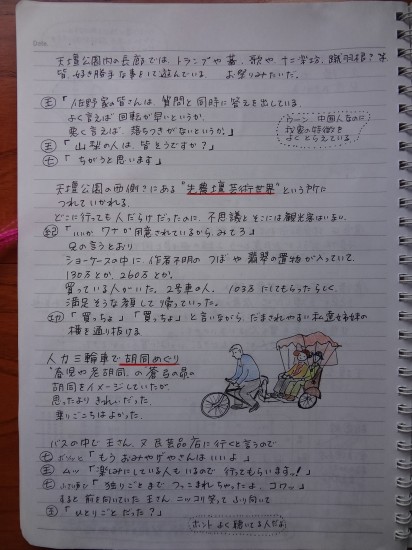 天壇公園内の長廊では、トランプや
皆、好き勝手な事をして遊んでいる。 お祭りみたいだ。
王「佐野家の皆さんは、質問と同時に答えを出している。
よく言えば 回転が早いというか、
悪く言えば 落ちつきがないというか。」
王「山梨の人は、皆そうですか?」
七「ちがうと思います」
うーん 中国人なのに
我家の特徴を
よくとらえている
天壇公園の西側にある“先農壇芸術世界”という所に
つれていかれる。
どこに行っても人だらけだったのに、不思議とそこには観光客はいない。
「いいか、ワナが用意されているから、みてろ」
兄の言うとおり
ショーケースの中に、作者不明の つぼや 翡翠の置物が入っていて
130万とか、260万とか。
買っている人がいた。2号車の人。103万にしてもらったらしく、
満足そうな顔して帰っていった。
「買っちょ」「買っちょ」と言いながら、だまされやすい私達姉妹の
横を通り抜ける
人力三輪車で胡同めぐり
の蒼弓の昴の
胡同をイメージしていたが
思ったよりきれいだった
乗りごこちはよかった。
バスの中で王さん、又民芸品店に行くと言うので
七 ボソッと「もう おみやげやさんはいいよ」
王 ムッ「楽しみにしている人もいるので 行ってもらいます!」
七 小さい声で「独りごとまで つっこまれちゃったよ、コワッ」
すると 前を向いていた王さん ニッコリ笑って ふり向いて
王「ひとりごとだった?」
ホント よく聴いてる人だよ